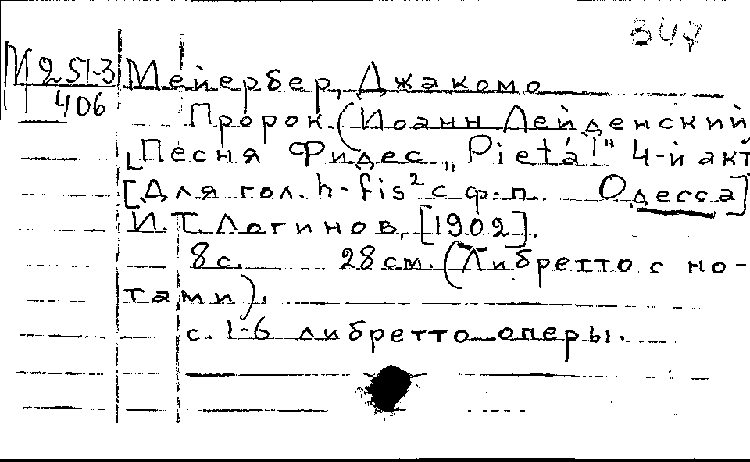 347
М 251-3
406
Мейербер, Джакомо
Пророк. (Иоанн Лейденский)
[Песня Фидес „Pietá!" 4-й акт
[Для гол. h-fis² с ф-п. Одесса]
И. Т. Логинов, [1902].
8 с. 28 см. (Либретто с но-
тами).
с. 1-6 либретто оперы.